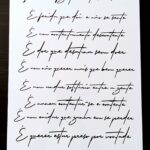 É ferida que dói e não se sente
É um contentamento descontente
É dor que desatina sem doer
É um não querer mais que bem querer
É um andar solitário entre a gente
É nunca contentar-se contente
É um cuidar que ganha em se perder
É querer estar preso por vontade